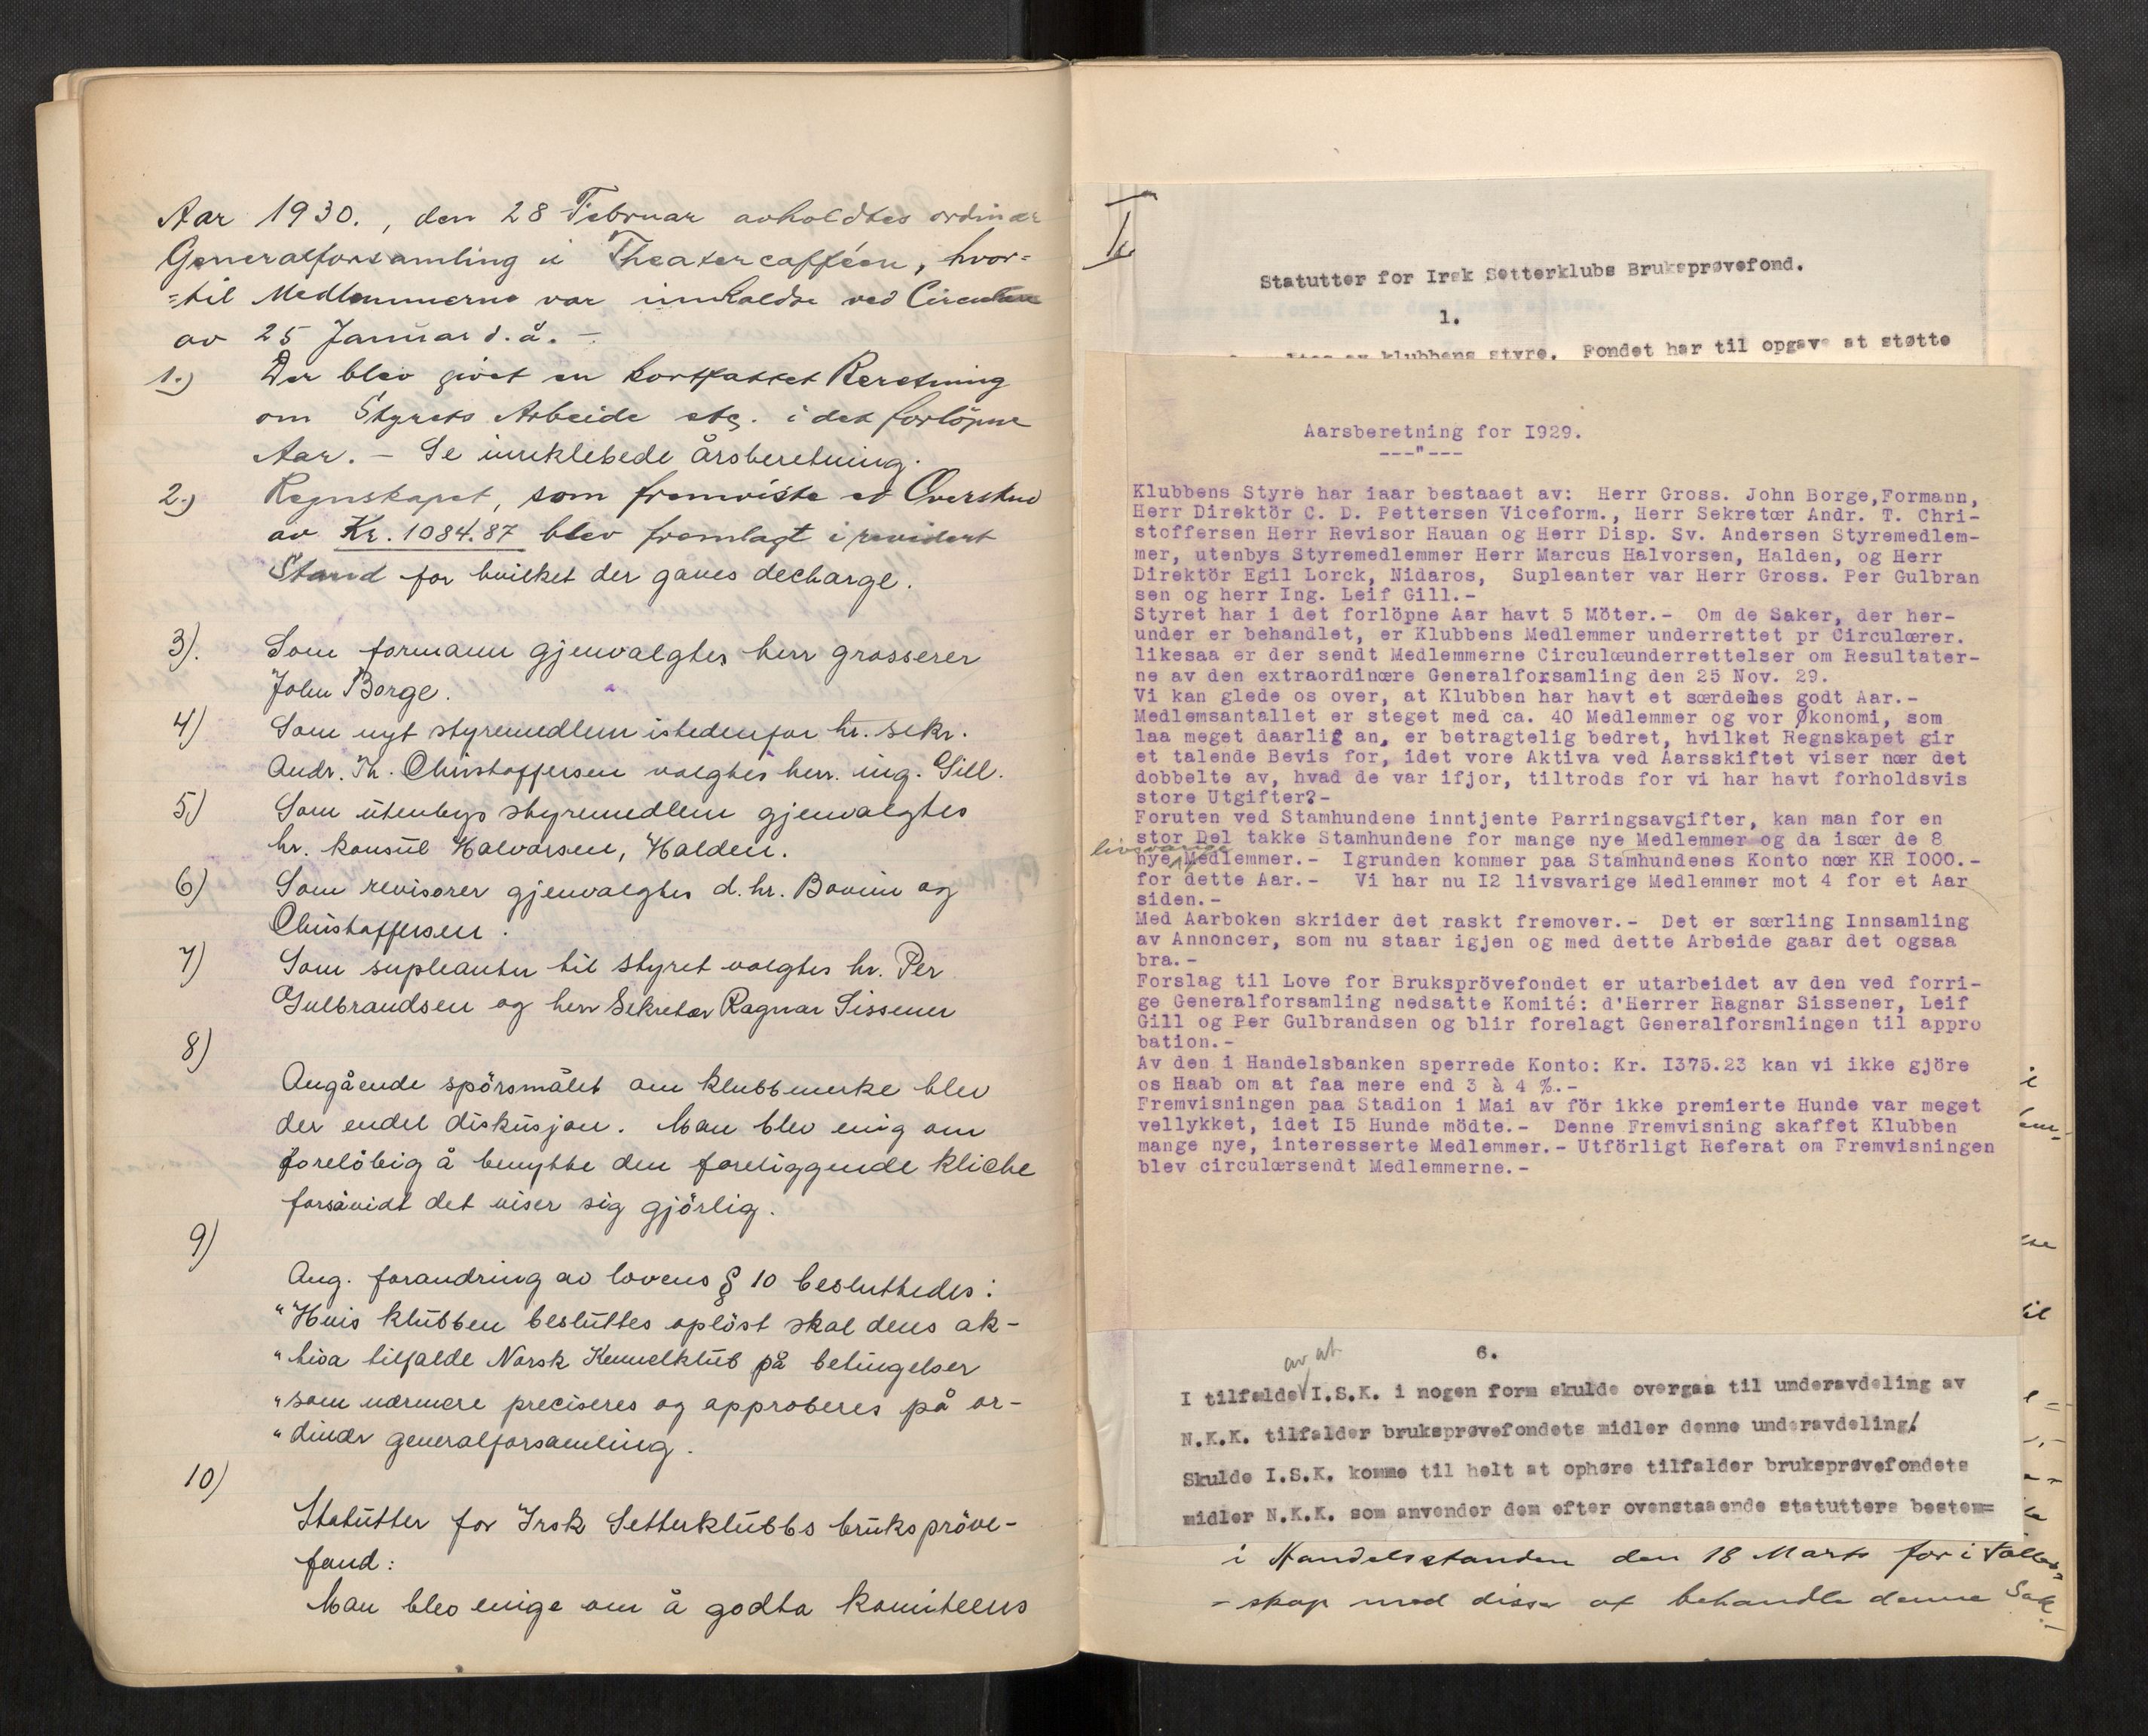 Aar 1930., den 28 Februar avholdtes ordinær
Generalforsamling i Theatercafféen, hvor=
=til Medlemmerne var innkaldt ved Circulære
av 25 Januar d. å. –
1.) Der blev givet en kortfattet Beretning
om Styrets Arbeide etc. i det forlöpne
Aar. – Se innklebede årsberetning.
2.) Regnskapet, som fremviste et Overskud
av Kr. 1084.87 blev fremlagt i revidert
Stand for hvilket der gaves decharge.
3). Som formann gjenvalgtes herr grosserer
John Borge.
4) Som nyt styremedlem istedenfor hr. sekr.
Andr. Th. Christoffersen valgtes herr. ing. Gill.
5) Som utenbys styremedlem gjenvalgtes
hr. konsul Halvorsen, Halden.
6) Som revisorer gjenvalgtes d. hr. Bovim og
Christoffersen.
7) Som supleanter til styret valgtes hr. Per
Gulbrandsen og herr Sekretær Ragnar Sissener
8)
Angående spörsmålet om klubbmerke blev
der endel diskusjon. Man blev enig om
forelöbig å benytte den foreliggende kliche
forsåvidt det viser sig gjörlig.
9)
Ang. forandring av lovens § 10 besluttedes:
"Hvis klubben besluttes oplöst skal dens ak-
"tiva tilfalde Norsk Kennelklub på betingelser
"som nærmere preciseres og approberes på or-
"dinær generalforsamling.
10)
Statutter for Irsk Setterklubbs brukspröve-
fond:
Man blev enige om å godta komiteens
Statutter for Irsk Setterklubs Bruksprøvefond.
1.
klubbens styre. Fondet har til opgave at støtte
Aarsberetning for I929.
---"---
Klubbens Styre har iaar bestaaet av: Herr Gross. John Borge,Formann,
Herr Direktör C. D. Pettersen Viceform., Herr Sekretær Andr. T. Chri-
stoffersen Herr Revisor Hauan og Herr Disp. Sv. Andersen Styremedlem-
mer, utenbys Styremedlemmer Herr Marcus Halvorsen, Halden, og Herr
Direktör Egil Lorck, Nidaros, Supleanter var Herr Gross. Per Gulbran
sen og herr Ing. Leif Gill.-
Styret har i det forlöpne Aar havt 5 Möter.- Om de Saker, der her-
under er behandlet, er Klubbens Medlemmer underrettet pr Circulærer.
likesaa er der sendt Medlemmerne Circulæunderrettelser om Resultater-
ne av den extraordinære Generalforsamling den 25 Nov. 29.
Vi kan glede os over, at Klubben har havt et særdeles godt Aar.-
Medlemsantallet er steget med ca. 40 Medlemmer og vor Økonomi, som
laa meget daarlig an, er betragtelig bedret, hvilket Regnskapet gir
et talende Bevis for, idet vore Aktiva ved Aarsskiftet viser nær det
dobbelte av, hvad de var ifjor, tiltrods for vi har havt forholdsvis
store Utgifter?-
Foruten ved Stamhundene inntjente Parringsavgifter, kan man for en
stor Del takke Stamhundene for mange nye Medlemmer og da især de 8
livsvarige
nye Medlemmer.- Igrunden kommer paa Stamhundenes Konto nær KR I000.-
for dette Aar.- Vi har nu I2 livsvarige Medlemmer mot 4 for et Aar
siden.-
Med Aarboken skrider det raskt fremover.- Det er særling Innsamling
av Annoncer, som nu staar igjen og med dette Arbeide gaar det ogsaa
bra.-
Forslag til Love for Bruksprövefondet er utarbeidet av den ved forri-
ge Generalforsamling nedsatte Komité: d'Herrer Ragnar Sissener, Leif
Gill og Per Gulbrandsen og blir forelagt Generalforsmlingen til appro
bation.-
Av den i Handelsbanken sperrede Konto: Kr. I375.23 kan vi ikke gjöre
os Haab om at faa mere end 3 à 4 %.-
Fremvisningen paa Stadion i Mai av för ikke premierte Hunde var meget
vellykket, idet I5 Hunde mödte.- Denne Fremvisning skaffet Klubben
mange nye, interesserte Medlemmer.- Utförligt Referat om Fremvisningen
blev circulærsendt Medlemmerne.-
6.
av at
I tilfælde I.S.K. i nogen form skulde overgaa til underavdeling av
N.K.K. tilfalder bruksprøvefondets midler denne underavdeling.
Skulde I.S.K. komme til helt at ophøre tilfalder bruksprøvefondets
midler N.K.K. som anvender dem efter ovenstaaende statutters bestem=
i Handelsstanden den 18 Marts for i Fælles=
=skap med disse at behandle denne Sak.-